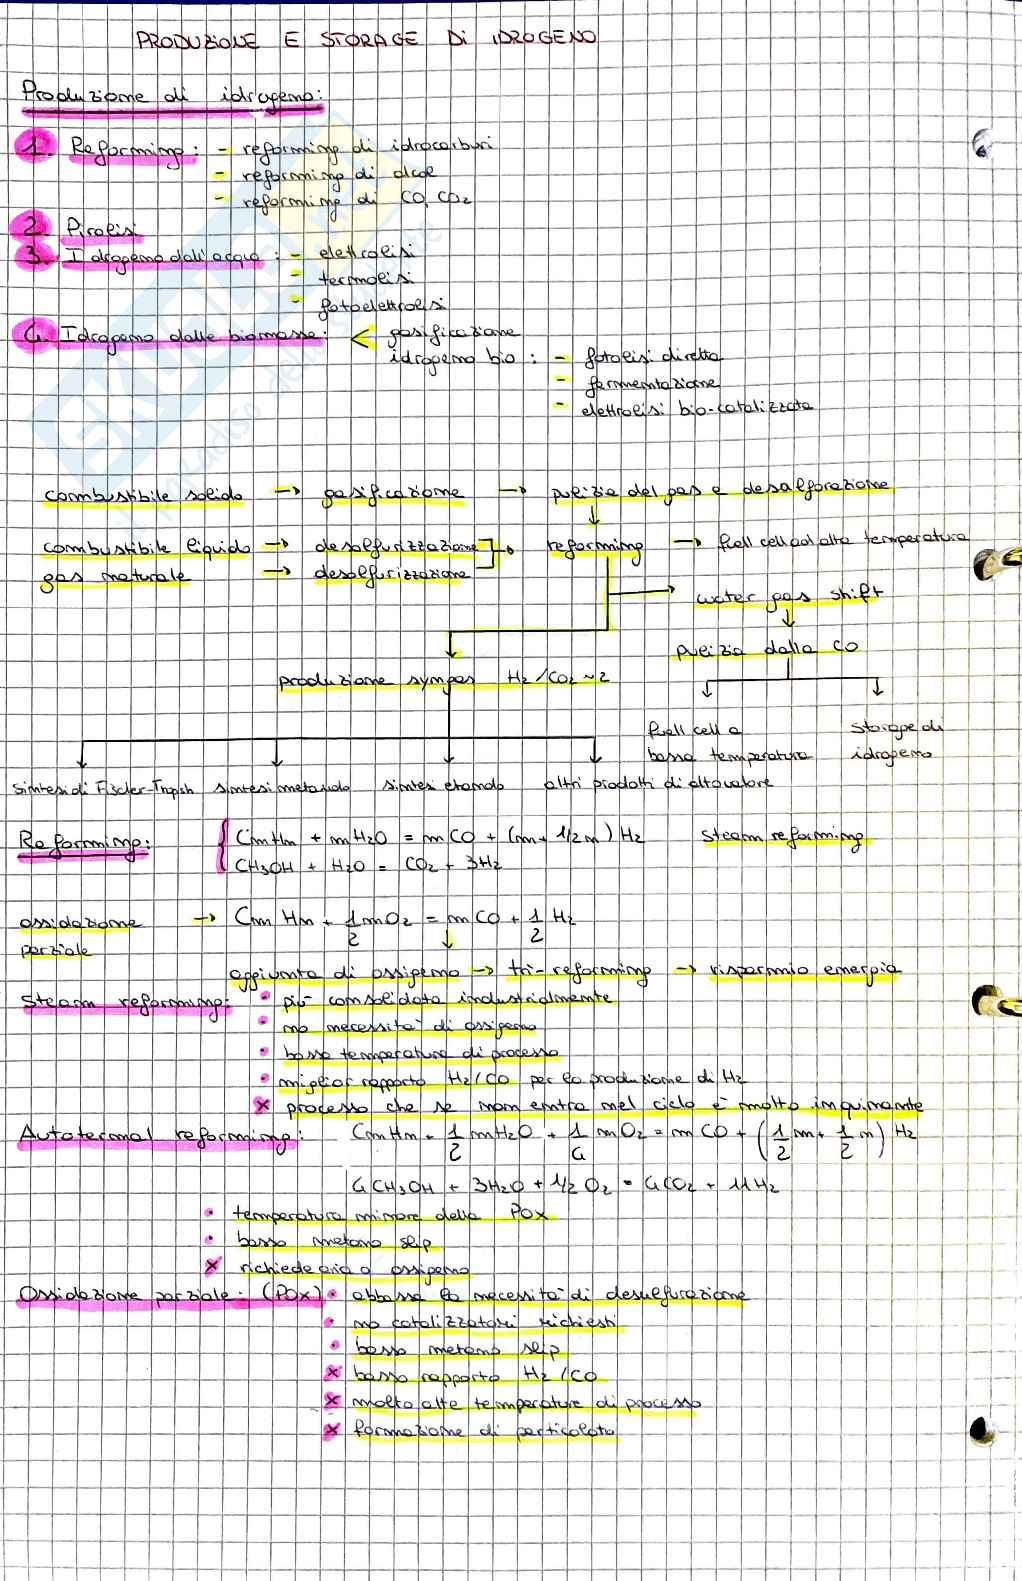 PRODUZIONE E STORAGE Di IDROGENO
Produzione di idrogeno:
1. Reforming: - reforming di idrocarburi
- reforming di alcol
- reforming di CO, CO2
2. Pirolisi
3. Idrogeno dall'acqua: - elettrolisi
- termolisi
- fotoelettrolisi
4. Idrogeno dalle biomasse: < gasificazione
idrogeno bio: - fotolisi diretta
- fermentazione
- elettrolisi bio-catalizzata
combustibile solido → gasificazione → pulizia del gas e desolforazione
combustibile liquido → desolfurizzazione → reforming → fuell cell ad alta temperatura
gas naturale → desolfurizzazione
water gas shift
pulizia dalla CO
produzione syngas H2/CO2 ~2
fuell cell a bassa temperatura
storage di idrogeno
sintesi di Fischer-Tropsh sintesi metanolo sintesi etanolo altri prodotti di alto valore
Reforming: { CnHm + nH2O = nCO + (n+1/2m) H2 steam reforming
CH3OH + H2O = CO2 + 3H2
ossidazione parziale → Cn Hm + 1/2 nO2 = n CO + 1/2 H2
aggiunta di ossigeno → tri-reforming → risparmio energia
Steam reforming: • più consolidata industrialmente
• no necessità di ossigeno
• bassa temperatura di processo
• miglior rapporto H2/CO per la produzione di H2
x processo che se non entra nel ciclo è molto inquinante
Autotermal reforming: CnHm + 1/2 nH2O + 1/4 nO2 = n CO + (1/2 n + 1/2 m) H2
4CH3OH + 3H2O + 1/2 O2 = 4CO2 + 11H2
• temperatura minore della POX
• basso metano slip
x richiede aria o ossigeno
Ossidazione parziale: (POX) • abbassa la necessità di desulfurazione
• no catalizzatori richiesti
• basso metano slip
x basso rapporto H2/CO
x molto alte temperature di processo
x formazione di particolato